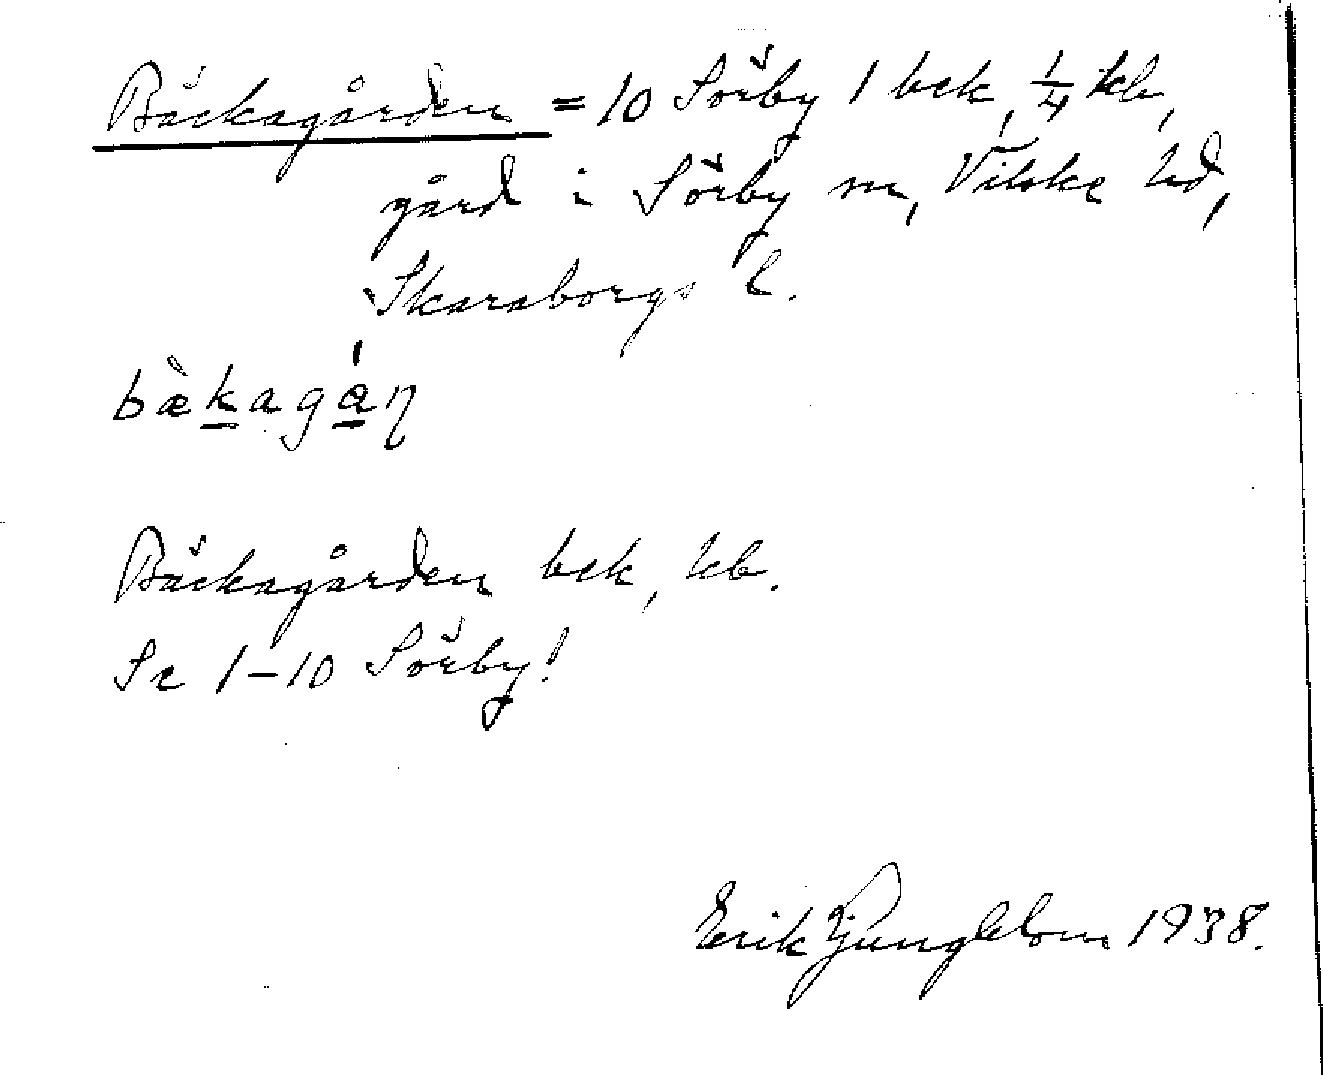 Bäckagården = 10 Sörby 1 bek, 1/4 kb,
gård i Sörby sn, Vilske hd,
Skaraborgs l.
bækagan
Bäckagården bek, kb.
Se 1-10 Sörby!
Erik Ljungblom 1938.